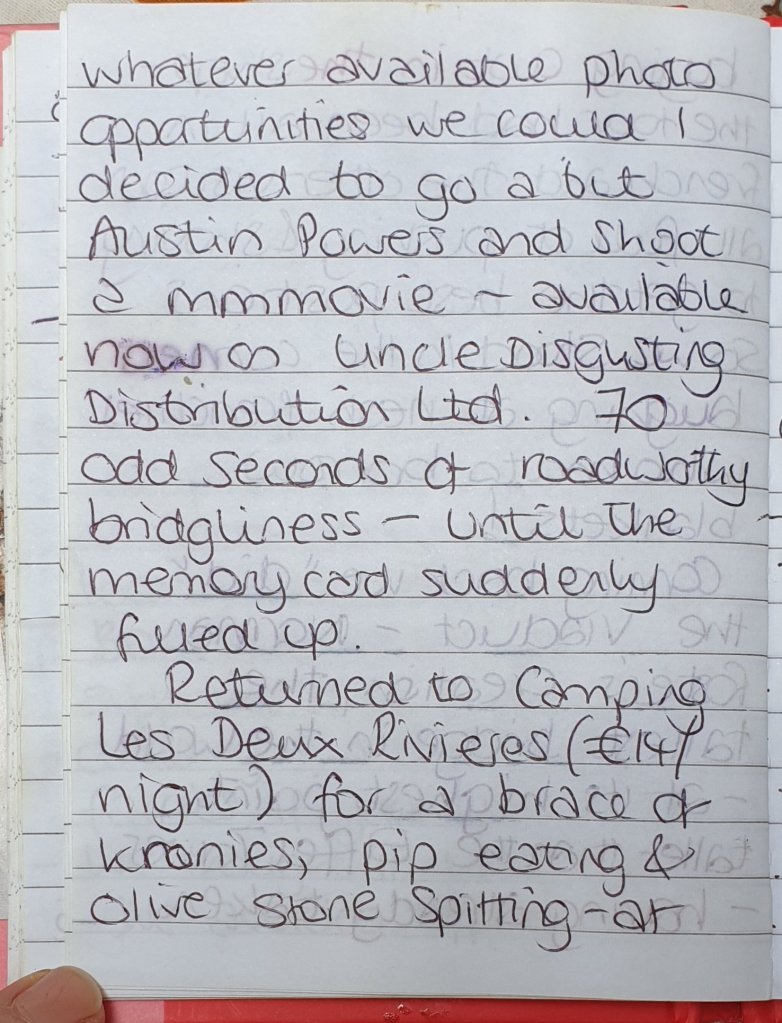 whatever available photo
opportunities we could I
decided to go a bit
Austin Powers and shoot
a mmmovie - available
now on Uncle Disgusting
Distribution Ltd. 70
odd seconds of roadworthy
bridgliness - until the
memory card suddenly
filled up.
Returned to Camping
Les Deux Rivieres (€14/
night) for a brace of
kronies, pip eating &
olive stone spitting - at